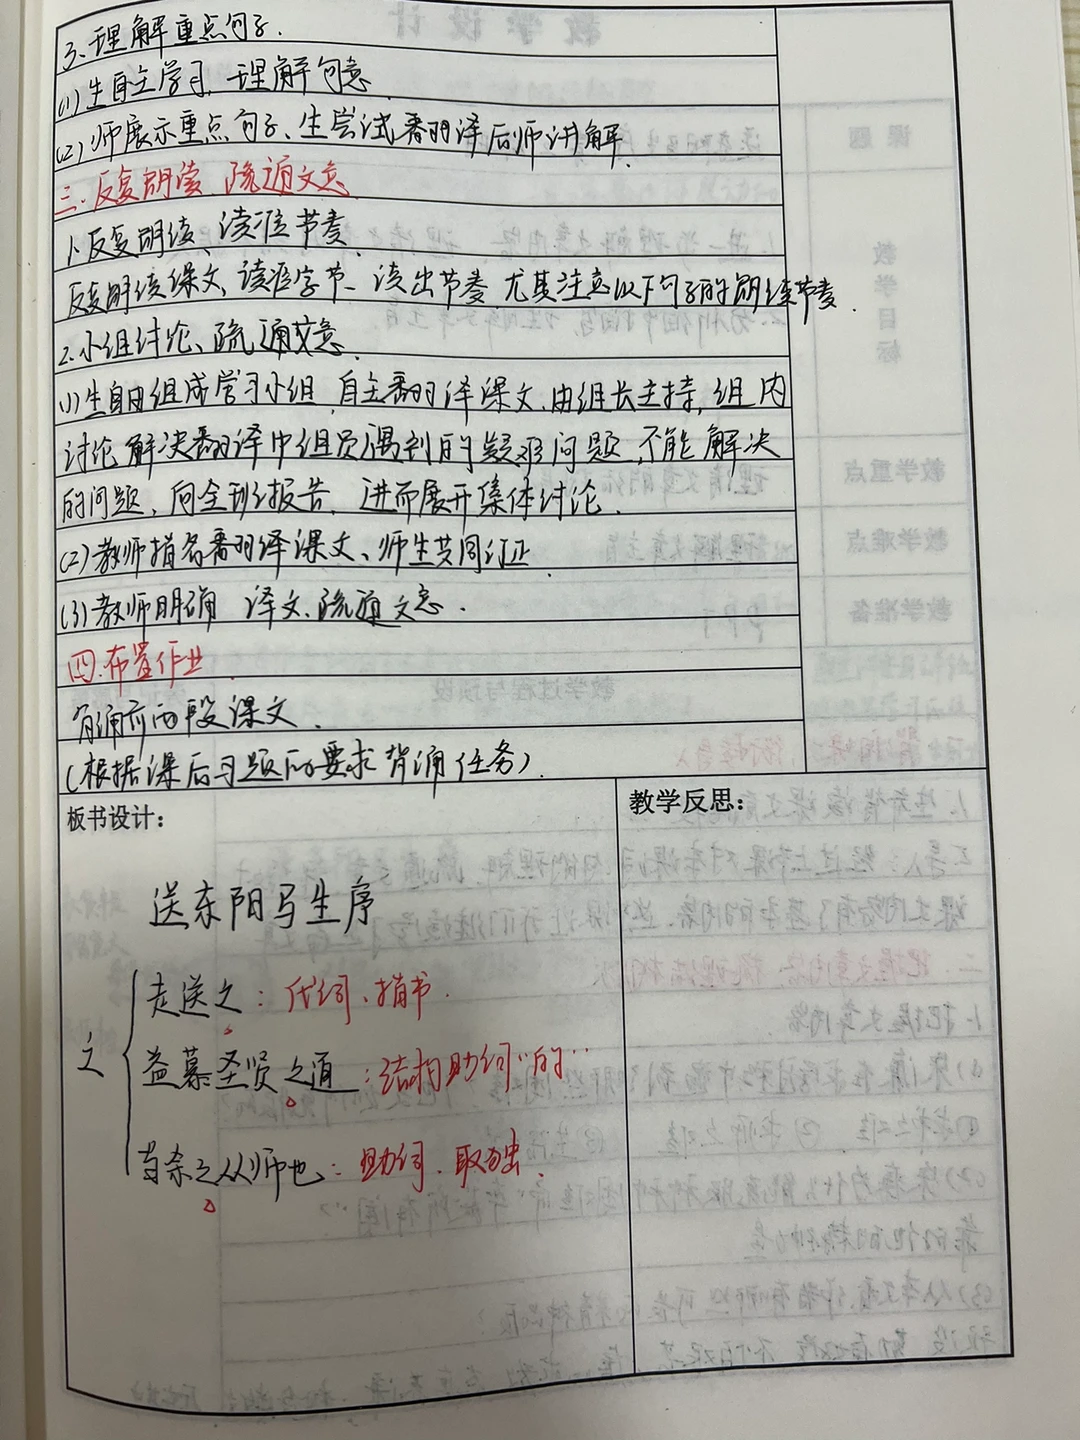 3、理解重点句子.
(1)生自主学习,理解句意
(2)师展示重点句子、生尝试翻译后师讲解.
三.反复朗读 疏通文意
1、反复朗读、读准节奏
反复朗读课文、读准字节、读出节奏 尤其注意以下句子的朗读节奏.
2.小组讨论、疏通文意.
(1)生自由组成学习小组,自主翻译课文.由组长主持,组内
讨论 解决翻译中组员遇到的疑难问题,不能解决
的问题、向全班报告,进而展开集体讨论.
(2)教师指名翻译课文、师生共同订正
(3)教师明确 译文、疏通文意.
四.布置作业
背诵前两段课文.
(根据课后习题的要求背诵任务).
板书设计:
教学反思:
送东阳马生序
之
走送之:代词、指书.
益慕圣贤之道:结构助词"的"
当余之从师也:助词.取独.